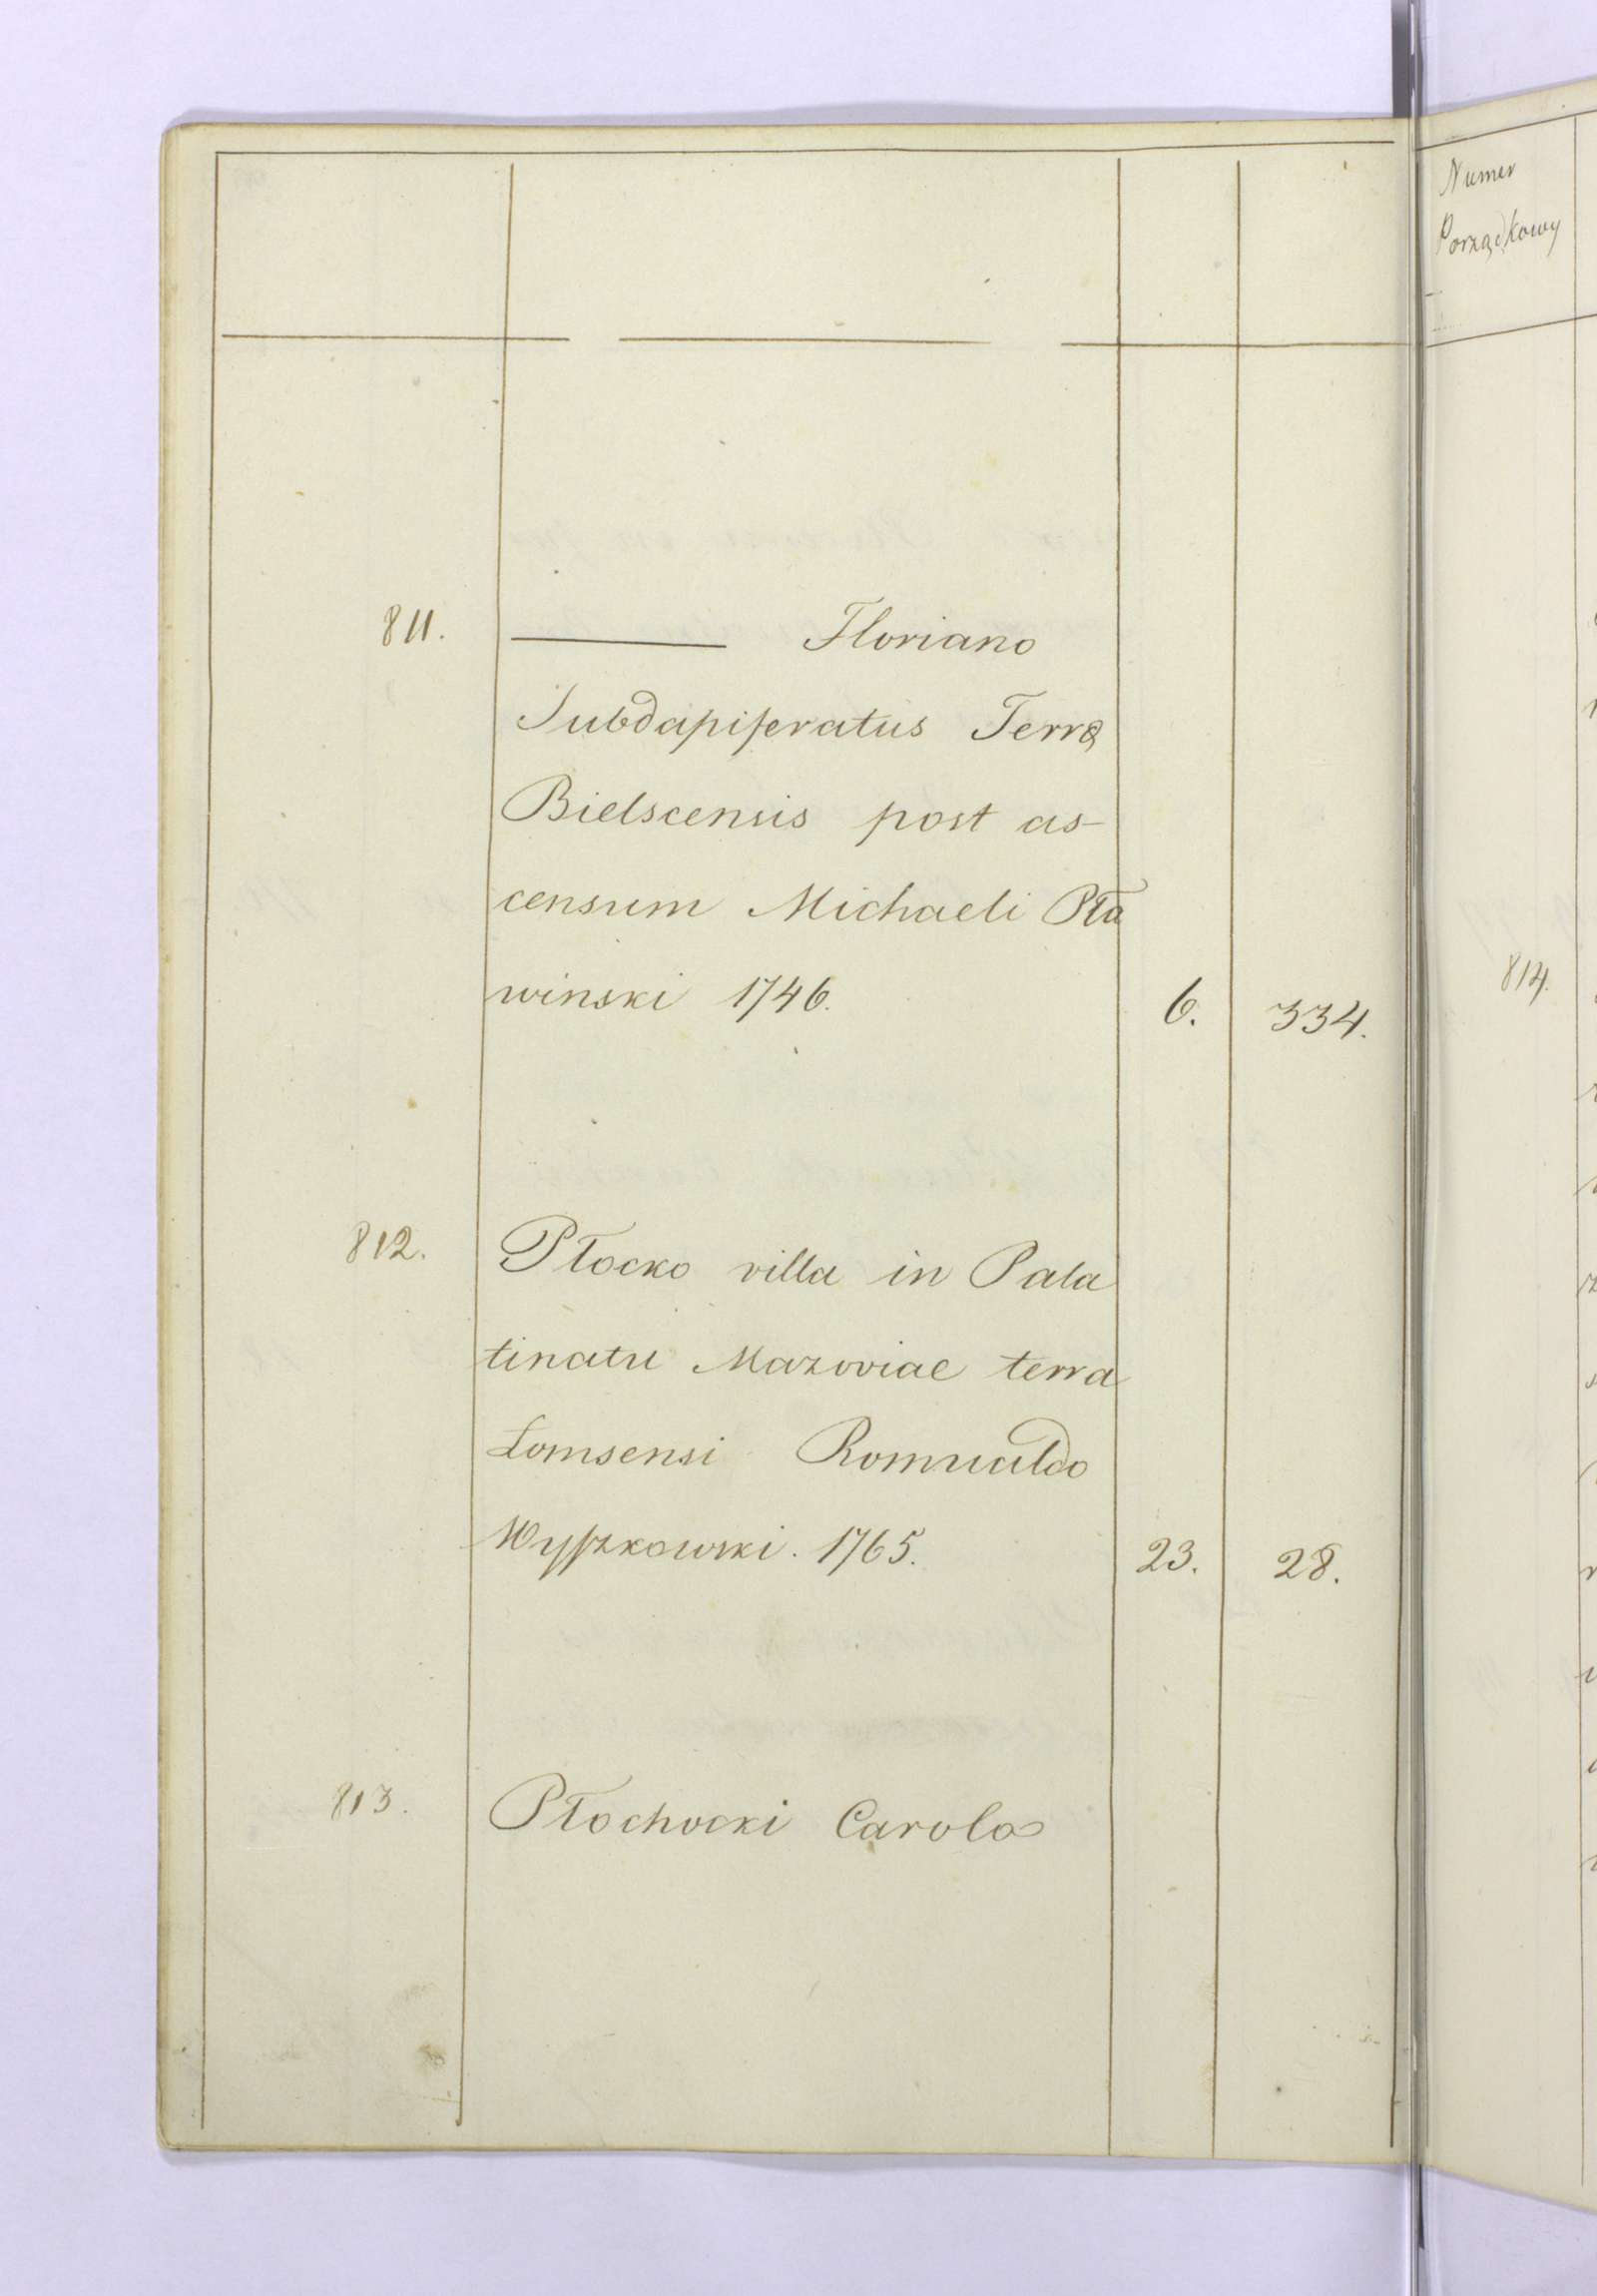 811. ——— Floriano
Subdapiferatus Terrę
Bielscensis post as-
censum Michaeli Pła
winski 1746. 6. 334.
812. Płocko villa in Pala
tinatu Mazoviae terra
Łomsensi Romualdo
Wyszkowski. 1765. 23. 28.
813. Płochocki Carolo
Numer
Porządkowy
814.